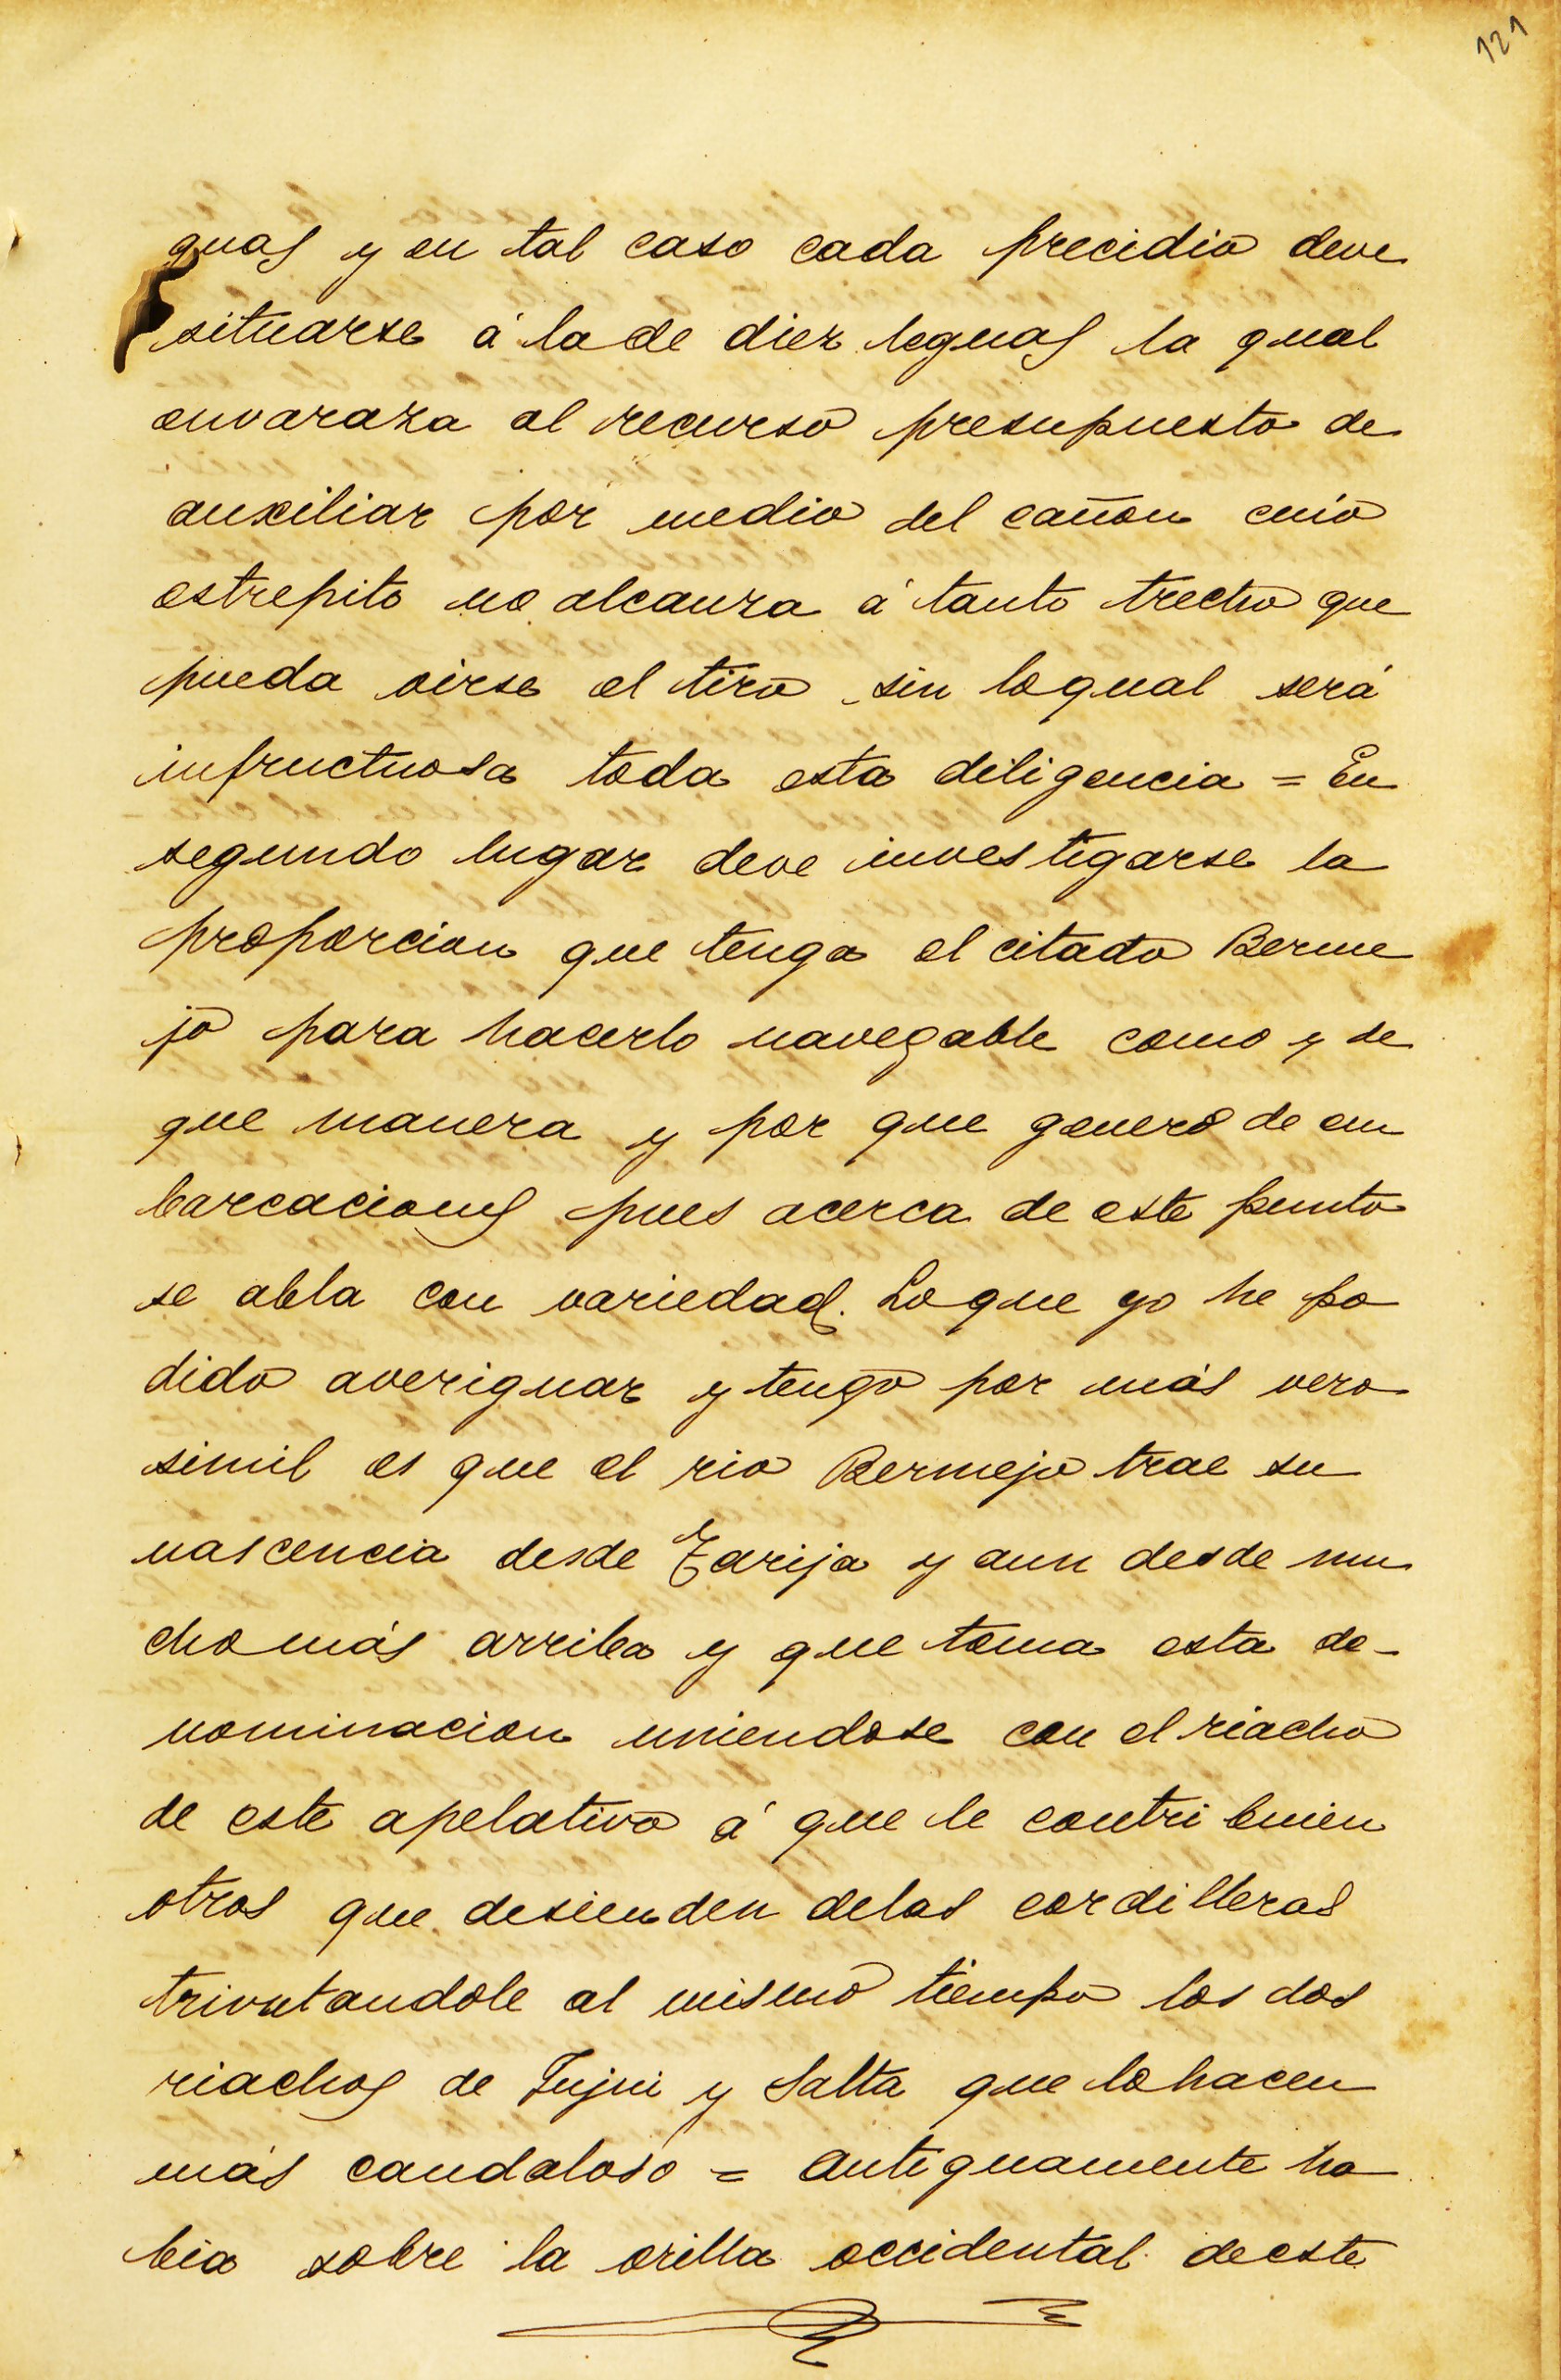 121
guas y en tal caso cada precidio deve
situarse á la de diez leguas la qual
envaraza al recurso presupuesto de
auxiliar por medio del cañon cuio
estrepito no alcanza á tanto trecho que
pueda oirse el tiro sin loqual será
infructuosa toda esta diligencia = En
segundo lugar deve investigarse la
proporcion que tenga el citado Berme
jo para hacerlo navegable como y de
que manera y por que genero de em
barcaciones pues acerca de este punto
se abla con variedad. Loque yo he po
dido averiguar y tengo por más vero
simil es que el rio Bermejo trae su
nascencia desde Tarija y aun desde mu
cho más arriba y que toma esta de-
nominacion uniendose con el riacho
de este apelativo á que le contribuien
otros que desienden delas cordilleras
trivutandole al mismo tiempo los dos
riachos de Jujui y Salta que lo hacen
más caudaloso = Antiguamente ha
bia sobre la orilla occidental de este